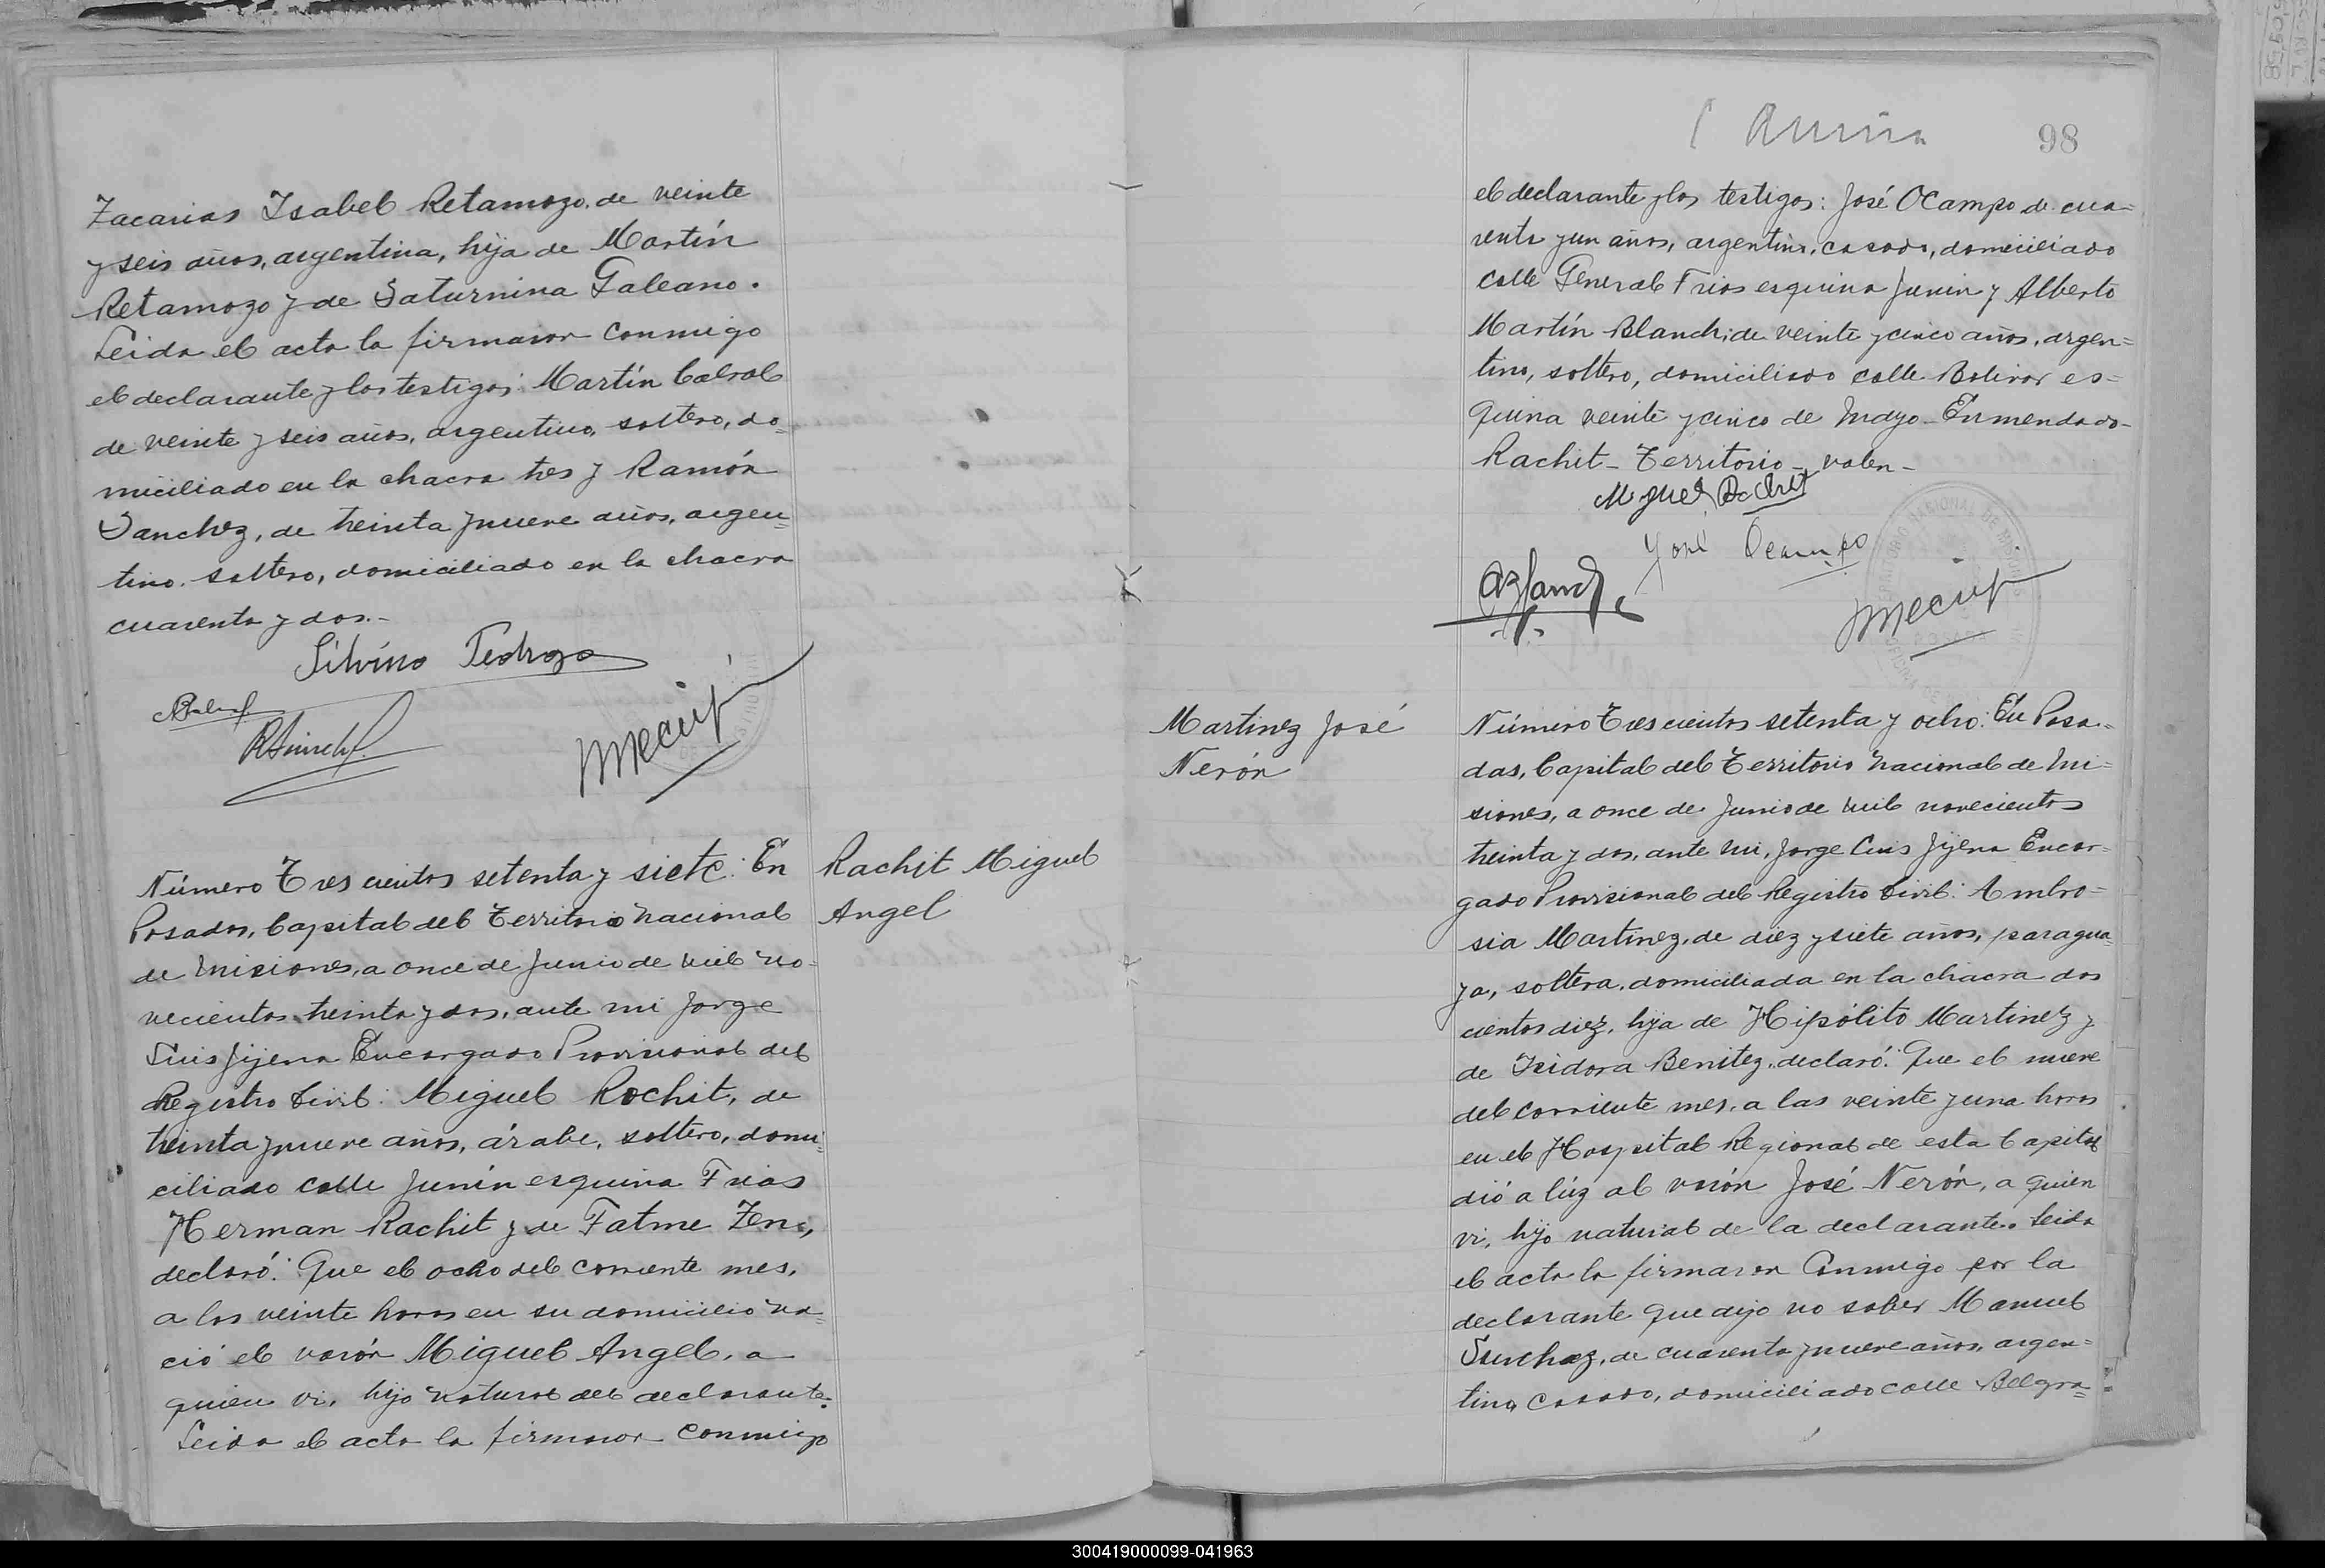 Zacarias Isabel Retamozo, de veinte
y seis años, argentina, hija de Martín
Retamozo y de Saturnina Galeano.
Leida el acta la firmaron conmigo
el declarante y los testigos: Martín Cabral
de veinte y seis años, argentino, soltero, do=
miciliado en la chacra tres y Ramón
Sanchez, de treinta y nueve años, argen=
tino, soltero, domiciliado en la chacra
cuarenta y dos.-
Silvino Pedrozo
Número Trescientos setenta y siete: En
Posadas, Capital del Territorio Nacional
de Misiones, a once de Junio de mil no=
vecientos treinta y dos, ante mi Jorge
Luis Jijena Encargado Provisional del
Registro Civil: Miguel Rachit, de
treinta y nueve años, árabe, soltero, domi=
ciliado calle Junín esquina Frias
Herman Rachit y de Fatme
declaró: Que el ocho del corriente mes,
a las veinte horas en su domicilio na=
ció el varón Miguel Angel, a
quien vi, hijo natural del declarante.
Leida el acta la firmaron conmigo
Rachit Miguel
Angel
98
el declarante y los testigos: José Ocampo de cua=
renta y un años, argentino, casado, domiciliado
calle General Frias esquina Junin y Alberto
Martín Blanch, de veinte y cinco años, argen=
tino, soltero, domiciliado calle Bolivar es=
quina veinte y cinco de Mayo-Enmendado-
Rachit-Territorio-valen-
Miguel Rachit
José Ocampo
Martinez José
Nerón
Número Trescientos setenta y ocho: En Posa=
das, Capital del Territorio Nacional de Mi=
siones, a once de Junio de mil novecientos
treinta y dos, ante mi, Jorge Luis Jijena Encar=
gado Provisional del Registro Civil: Ambro=
sia Martinez, de diez y siete años, paragua=
ya, soltera, domiciliada en la chacra dos
cientos diez, hija de Hipólito Martinez y
de Isidora Benitez, declaró: Que el nueve
del corriente mes, a las veinte y una horas
en el Hospital Regional de esta Capital
dió a lúz al varón José Nerón, a quien
vi, hijo natural de la declarante. Leida
el acta la firmaron conmigo por la
declarante que dijo no saber Manuel
Sanchez, de cuarenta y nueve años, argen=
tino, casado, domiciliado calle Belgra=
300419000099-041963